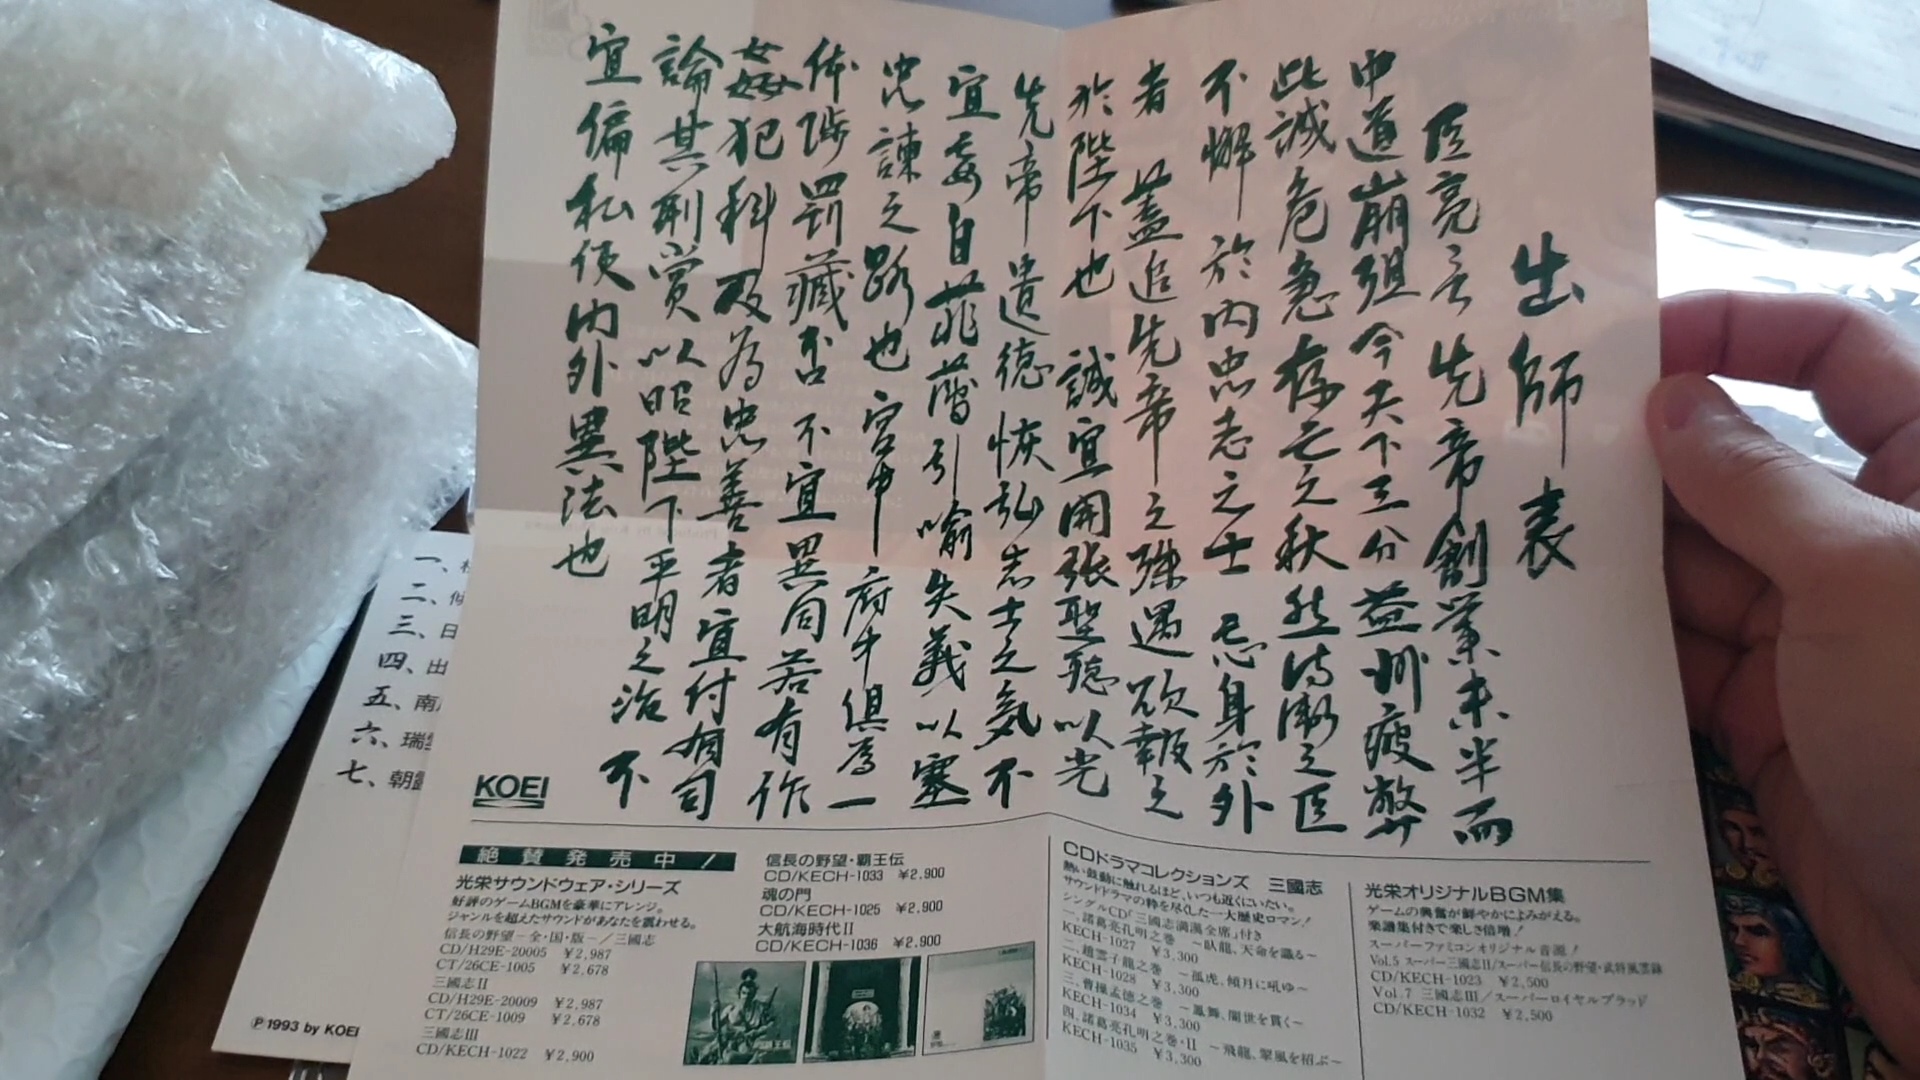 出師表
臣亮言先帝創業未半而
中道崩殂今天下三分益州疲弊
此誠危急存亡之秋然侍衛之臣
不懈於内忠志之士忘身於外
者 蓋追先帝之殊遇欲報之
於陛下也 誠宜開張聖聴以光
先帝遺徳恢弘志士之気不
宜妄自菲薄引喩失義以塞
忠諫之路也 宮中府中俱為一
体陟罰藏否 不宜異同若有作
姦犯科及為忠善者宜付有司
論其刑賞以昭陛下平明之治 不
宜偏私使内外異法也
KOEI
絶賛発売中!
光栄サウンドウェア・シリーズ
好評のゲームBGMを豪華にアレンジ。
ジャンルを超えたサウンドがあなたを震わせる。
信長の野望-全・国・版-/三國志
CD/H29E-20005 ¥2,987
CT/26CE-1005 ¥2,678
三國志II
CD/H29E-20009 ¥2,987
CT/26CE-1009 ¥2,678
三國志III
CD/KECH-1022 ¥2,900
信長の野望・覇王伝
CD/KECH-1033 ¥2,900
魂の門
CD/KECH-1025 ¥2,900
大航海時代II
CD/KECH-1036 ¥2,900
CDドラマコレクションズ 三國志
熱い鼓動に触れるほど、いつも近くにいたい。
サウンドドラマの粋を尽くした一大歴史ロマン!
シングルCD「三國志満漢全席」付き
一、諸葛亮孔明之巻 ～臥龍、天命を識る～
KECH-1027 ¥3,300
二、趙雲子龍之巻 ～孤虎、傾月に吼ゆ～
KECH-1028 ¥3,300
三、曹操孟徳之巻 ～鳳舞、闇世を貫く～
KECH-1034 ¥3,300
四、諸葛亮孔明之巻・II ～飛龍、翠風を招ぶ～
KECH-1035 ¥3,300
光栄オリジナルBGM集
ゲームの興奮が鮮やかによみがえる。
楽譜集付きで楽しさ倍増!
スーパーファミコンオリジナル音源!
Vol.5 スーパー三國志II/スーパー信長の野望・武将風雲録
CD/KECH-1023 ¥2,500
Vol.7 三國志III/スーパーロイヤルブラッド
CD/KECH-1032 ¥2,500
一、
二、
三、日
四、出
五、南
六、瑞
七、朝
Ⓟ1993 by KOEI